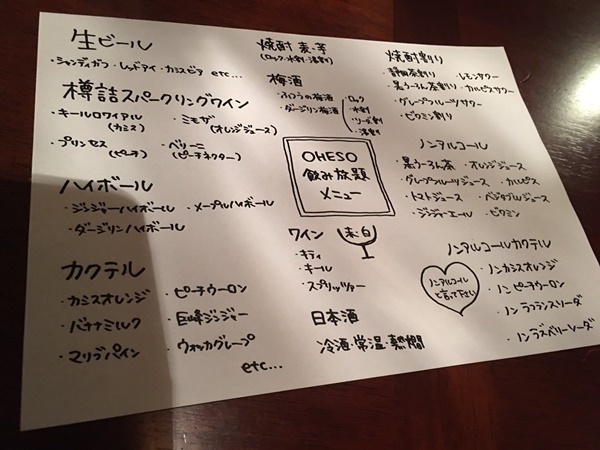 生ビール
・シャンディガフ・レッドアイ・カシスビア etc...
樽詰スパークリングワイン
・キールロワイアル
(カシス)
・ミモザ
(オレンジジュース)
・プリンセス
(ピーチ)
・ベリーニ
(ピーチネクター)
ハイボール
・ジンジャーハイボール ・メープルハイボール
・ダージリンハイボール
カクテル
・カシスオレンジ
・ピーチウーロン
・バナナミルク
・巨峰ジンジャー
・マリブパイン
・ウォッカグレープ
etc...
焼酎 麦・芋
(ロック・水割・湯割)
梅酒
・ふつうの梅酒
・ダージリン梅酒
ロック
水割
ソーダ割
湯割
OHESO
飲み放題
メニュー
ワイン 赤・白
・キティ
・キール
・スプリッツァー
日本酒
冷酒・常温・熱燗
焼酎割り
・静岡茶割り ・レモンサワー
・黒うーろん茶割り・カルピスサワー
・グレープフルーツサワー
・ビタミン割り
ノンアルコール
・黒うーろん茶 ・オレンジジュース
・グレープフルーツジュース ・カルピス
・トマトジュース ・ベジタブルジュース
・ジンジャーエール ・ビタミン
ノンアルコールカクテル
ノンアルコール
と言って下さい
・ノンカシスオレンジ
・ノンピーチウーロン
・ノンラフランスソーダ
・ノンラズベリーソーダ